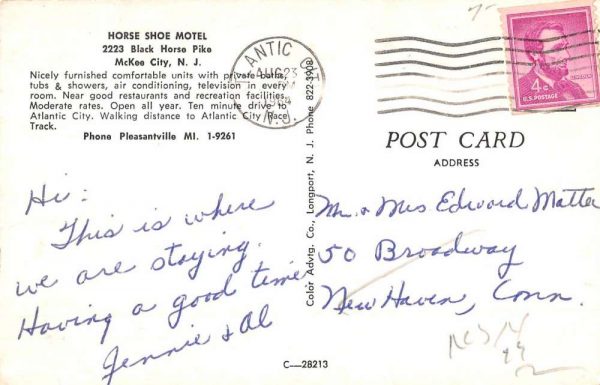 HORSE SHOE MOTEL
2223 Black Horse Pike
McKee City, N. J.
Nicely furnished comfortable units with private baths,
tubs & showers, air conditioning, television in every
room. Near good restaurants and recreation facilities.
Moderate rates. Open all year. Ten minute drive to
Atlantic City. Walking distance to Atlantic City Race
Track.
Phone Pleasantville MI. 1-9261
Hi:
This is where
we are staying.
Having a good time
Jennie & Al
C—28213
Color Advtg. Co., Longport, N. J. Phone 822-3908
ANTIC
AUG 23
1964
N.J.
LINCOLN
4¢
U.S. POSTAGE
POST CARD
ADDRESS
Mr. & Mrs Edward Matter
50 Broadway
New Haven, Conn.